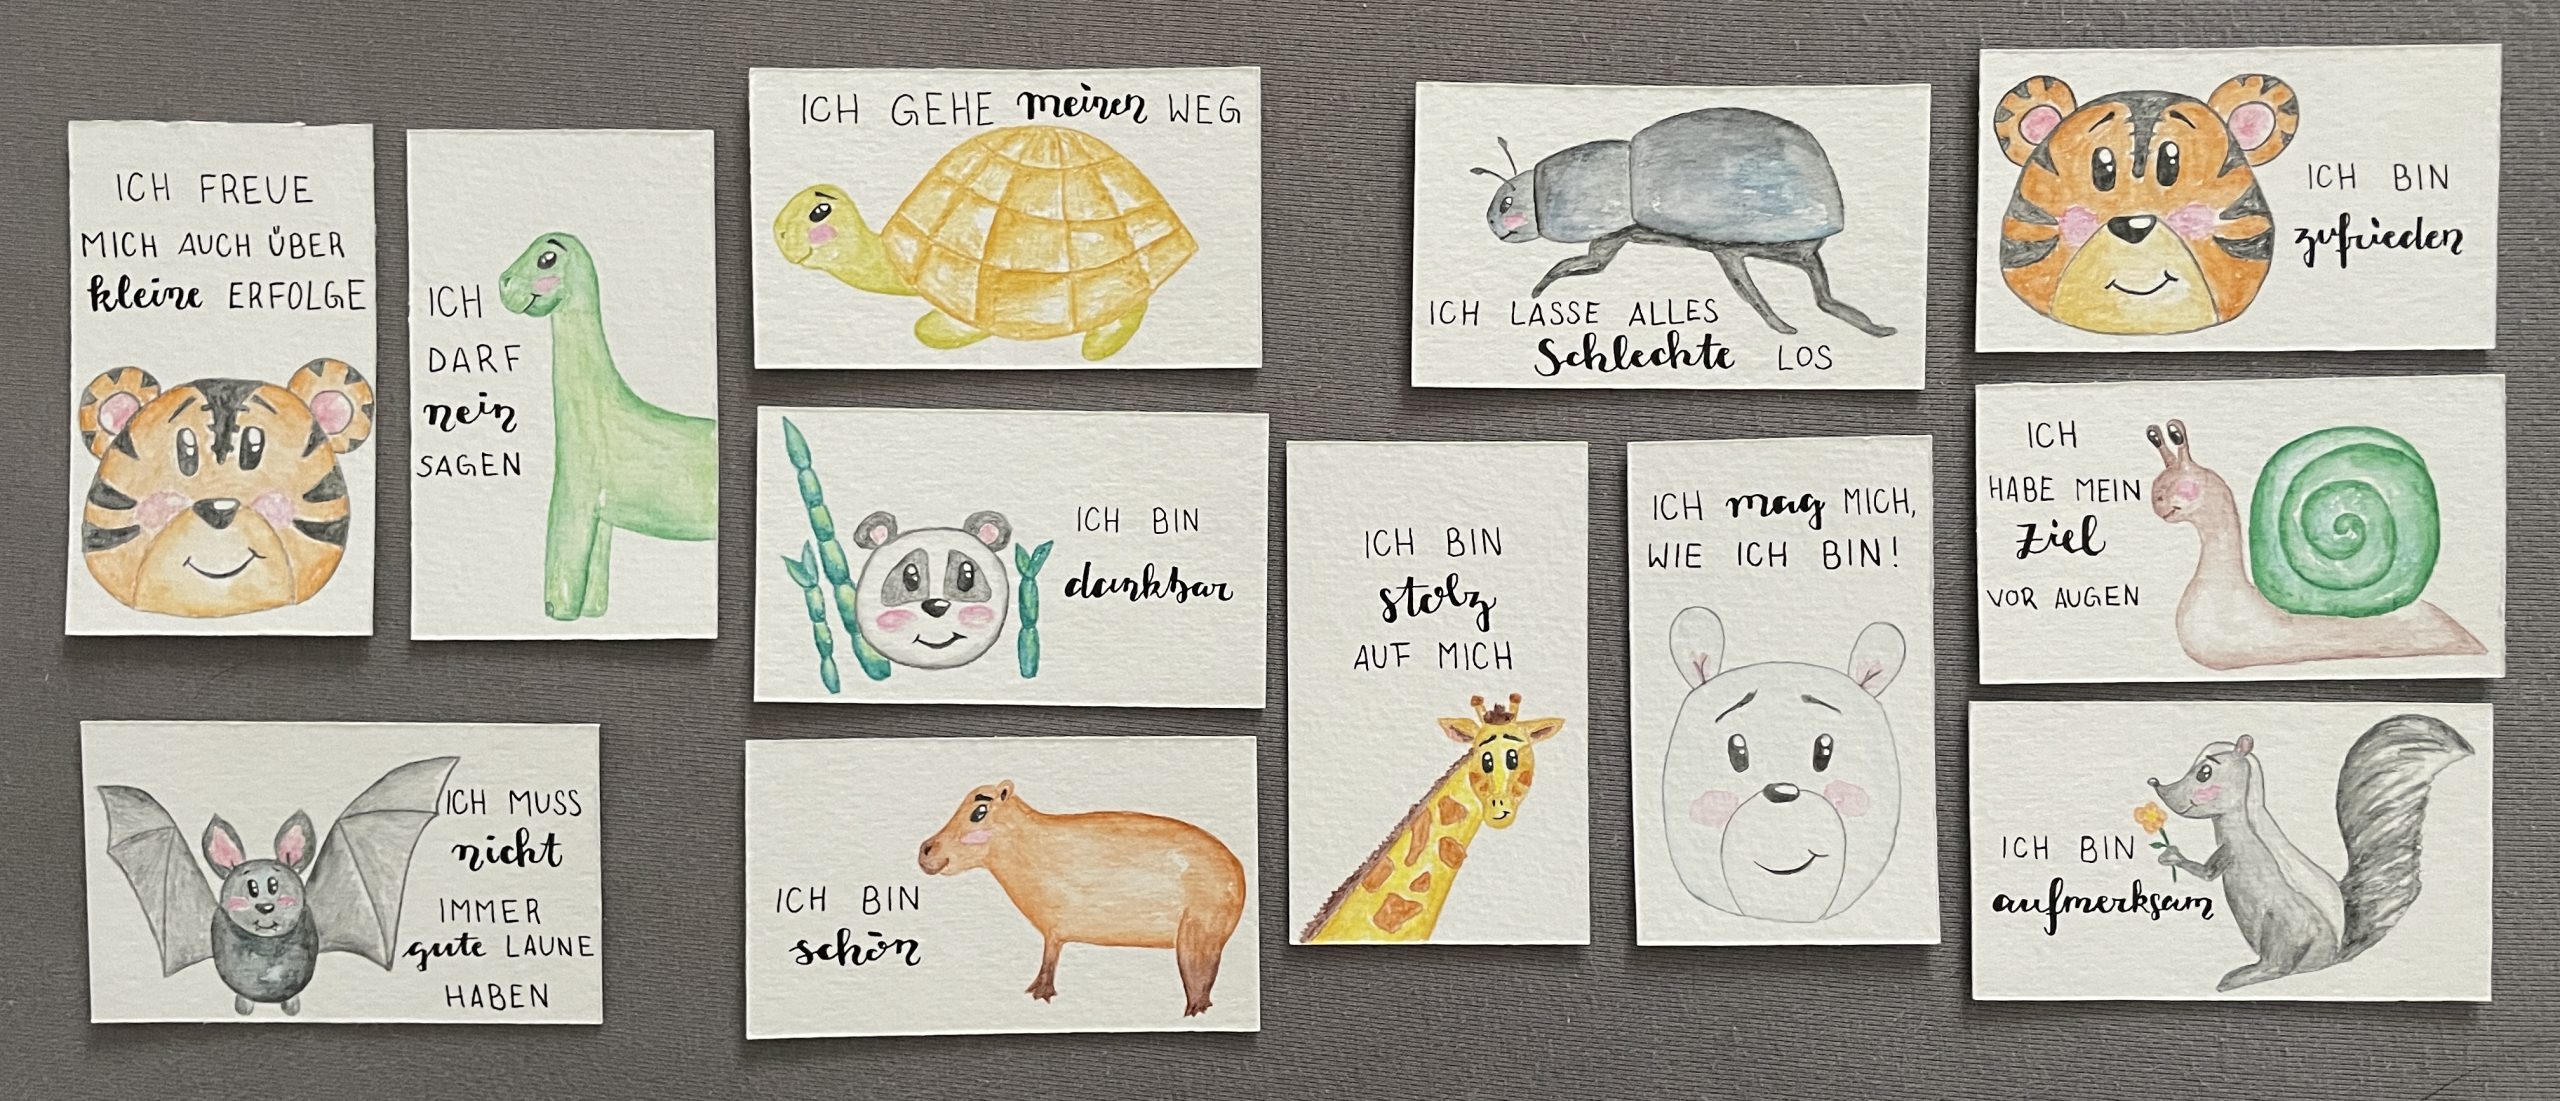 ICH FREUE
MICH AUCH ÜBER
kleine ERFOLGE
ICH
DARF
nein
SAGEN
ICH MUSS
nicht
IMMER
gute LAUNE
HABEN
ICH GEHE meinen WEG
ICH BIN
dankbar
ICH BIN
schön
ICH LASSE ALLES
Schlechte LOS
ICH BIN
stolz
AUF MICH
ICH mag MICH,
WIE ICH BIN!
ICH BIN
zufrieden
ICH
HABE MEIN
Ziel
VOR AUGEN
ICH BIN
aufmerksam